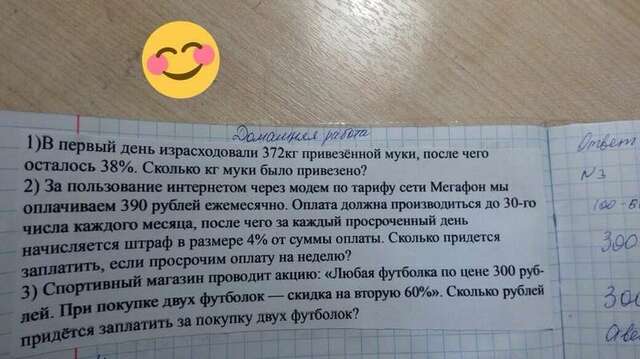 Домашняя работа
1)В первый день израсходовали 372кг привезённой муки, после чего
осталось 38%. Сколько кг муки было привезено?
2) За пользование интернетом через модем по тарифу сети Мегафон мы
оплачиваем 390 рублей ежемесячно. Оплата должна производиться до 30-го
числа каждого месяца, после чего за каждый просроченный день
начисляется штраф в размере 4% от суммы оплаты. Сколько придется
заплатить, если просрочим оплату на неделю?
3) Спортивный магазин проводит акцию: «Любая футболка по цене 300 руб-
лей. При покупке двух футболок — скидка на вторую 60%». Сколько рублей
придётся заплатить за покупку двух футболок?
Ответ
N3
100-6
300
300